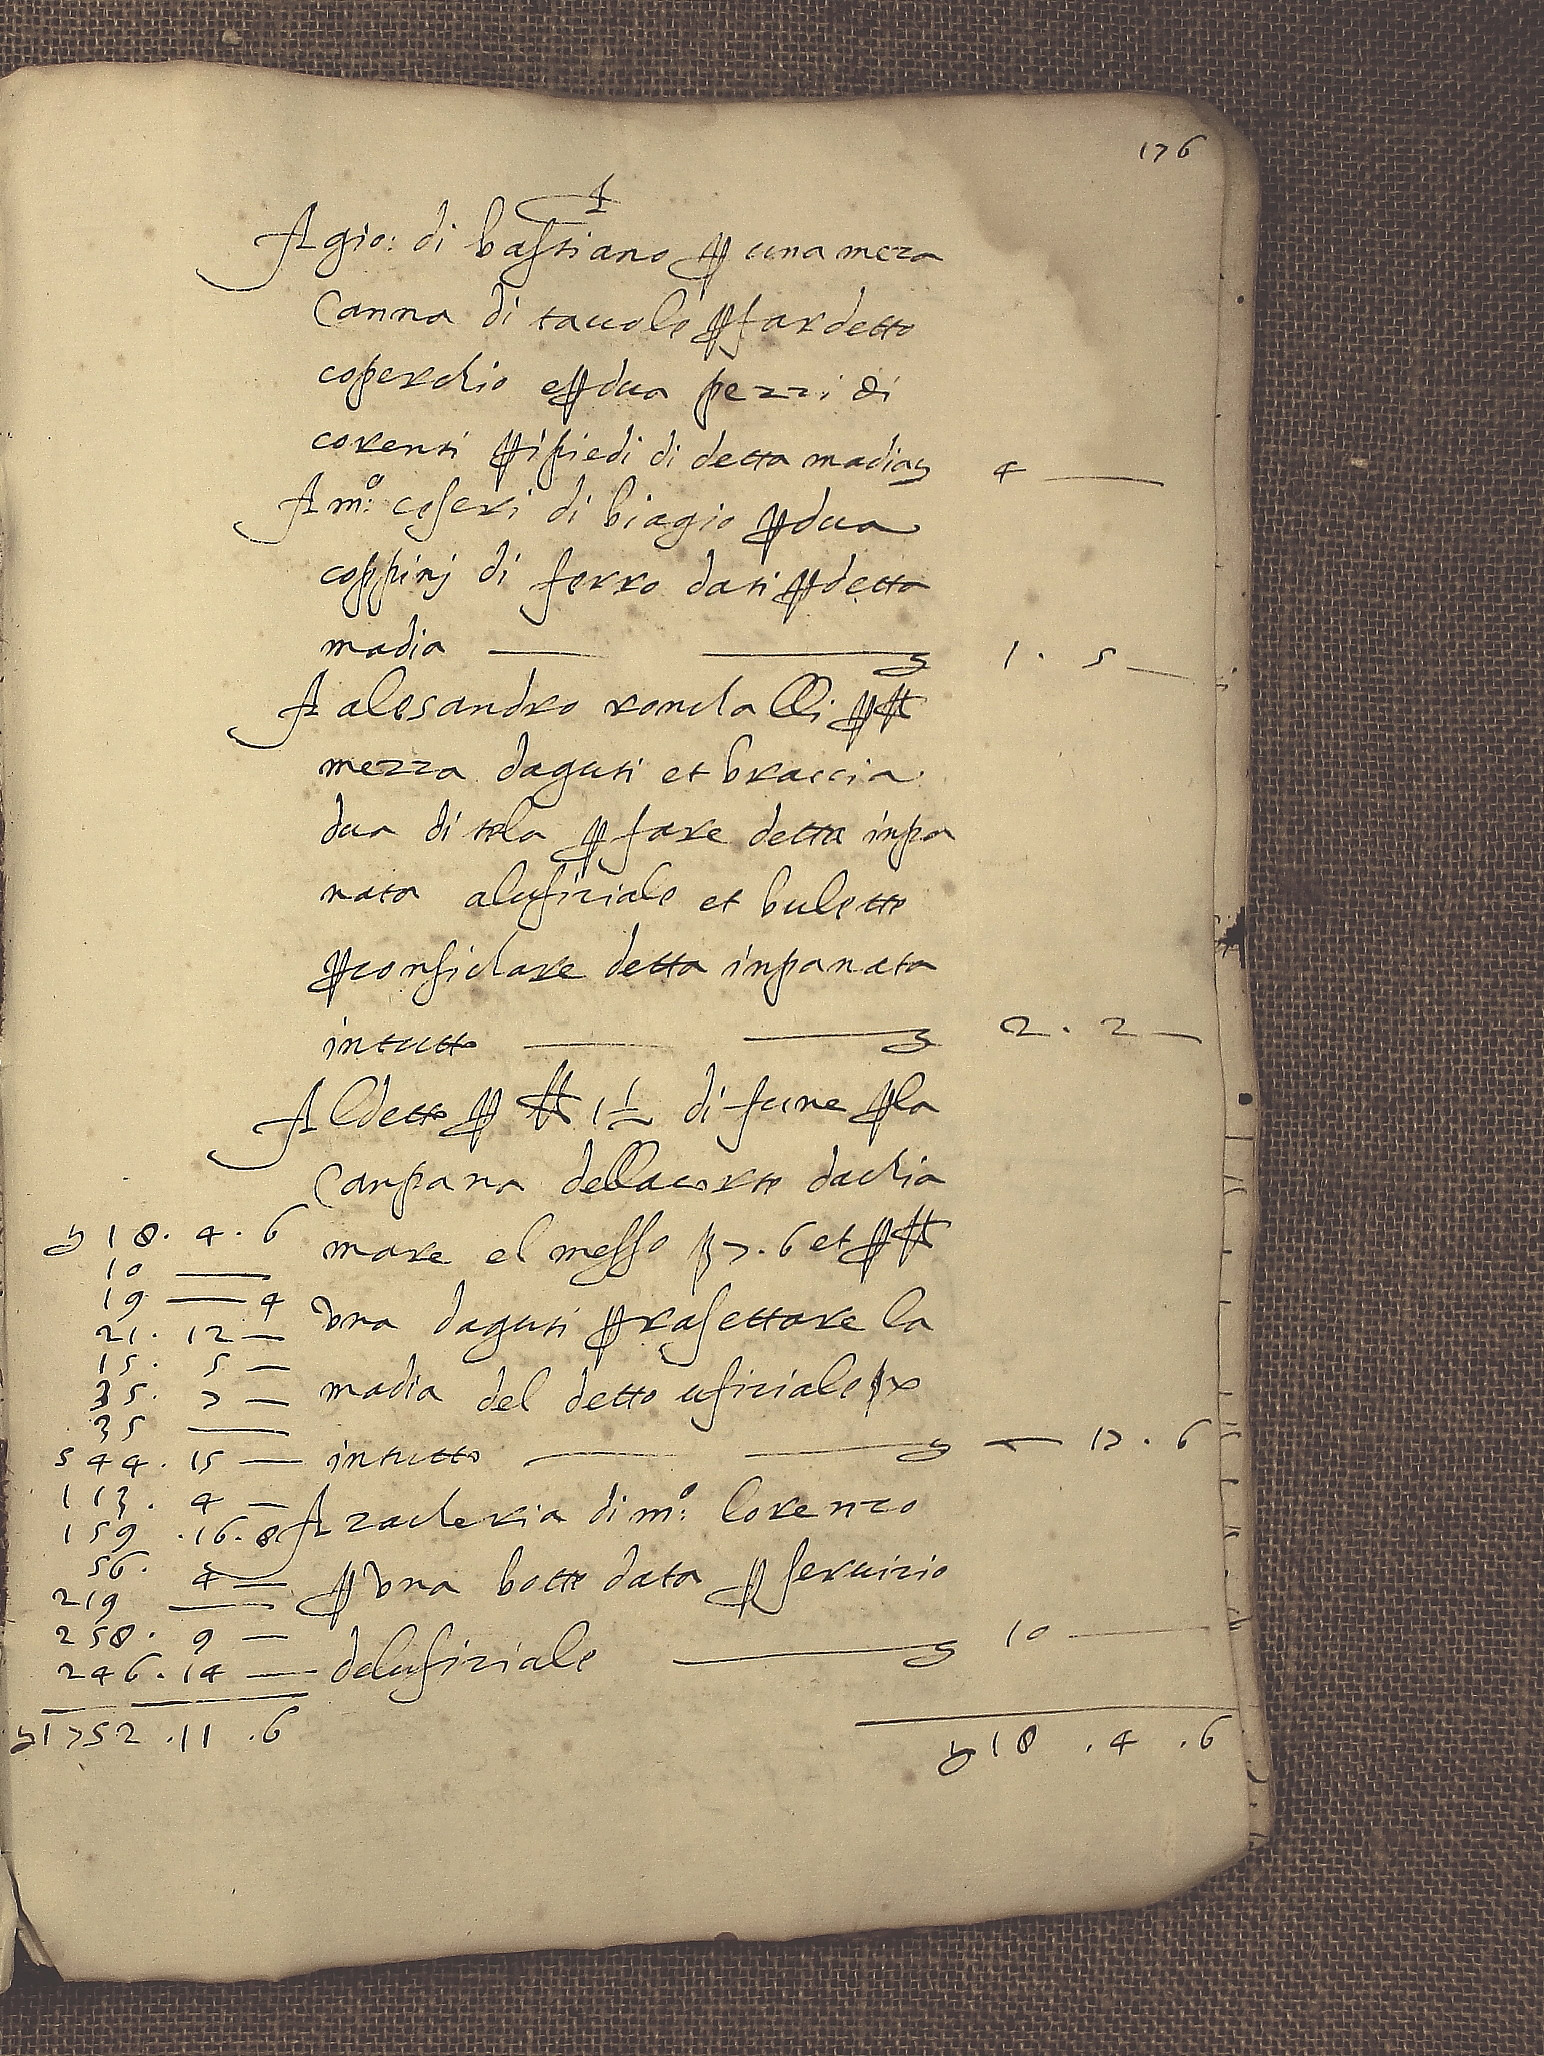 176
A gio: di bastiano p una meza
canna di tauole p far detto
coperchio e p dua pezzi di
corenti p i piedi di detta madia 4 —
A m:o ceseri di biagio p dua
coppini di ferro dati p detta
madia — — 1 . 5 —
A alesandro roncha lli p ℔
mezza daguti et braccia
dua di tela p fare detta inpa
nata alufiziale et bulette
p confichare detta inpanata
intutto — — 2 . 2 —
Al detto p ℔ 1 ½ di fune p la
canpana della corte dachia
mare el messo β 7 . 6 et p ℔
vna daguti p rasettare la
madia del detto ufiziale β x
intutto — — — 17 . 6
A zacheria di m:o lorenzo
p vna botte data p seruizio
delufiziale — 10 —
18 . 4 . 6
18 . 4 . 6
10 —
19 — 4
21 . 12 —
15 . 5 —
35 . 7 —
35 —
544 . 15 —
113 . 4 —
159 . 16 . 8
56 . 4 —
219 —
258 . 9 —
246 . 14 —
1752 . 11 . 6